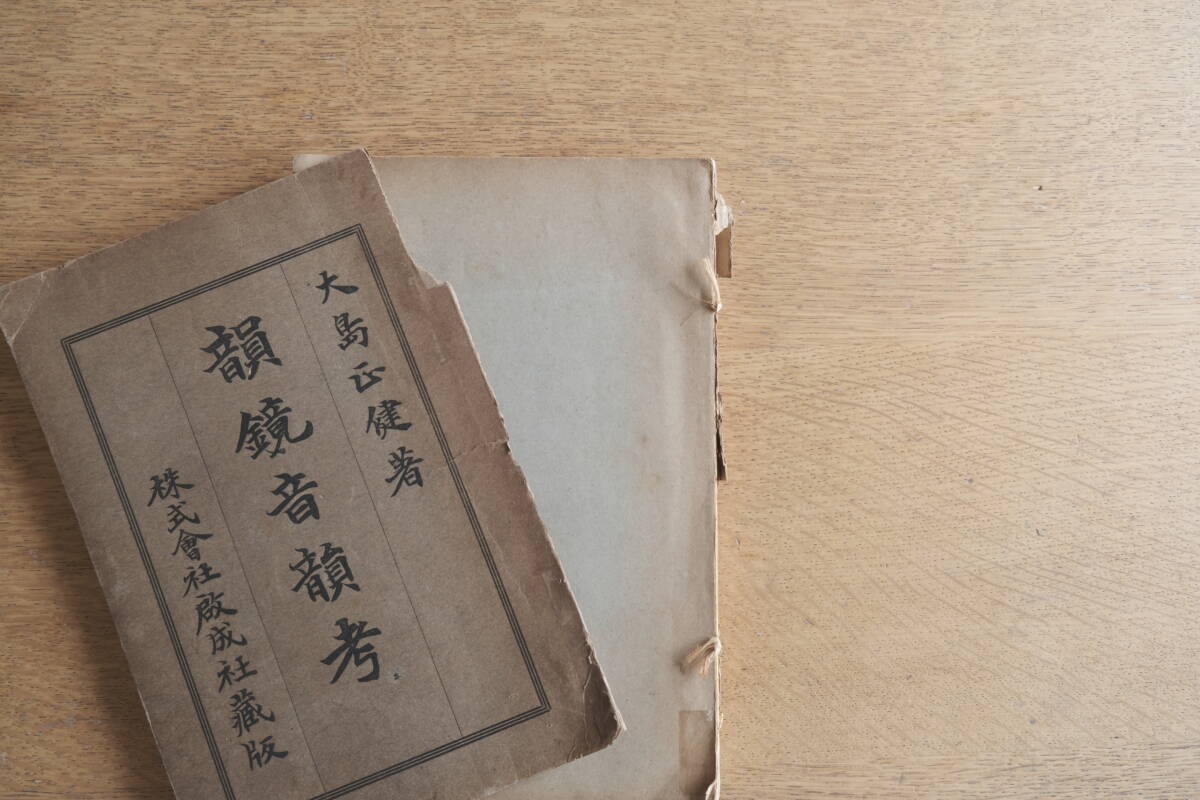 大島正健著
韻鏡音韻考
株式會社啟成社藏版